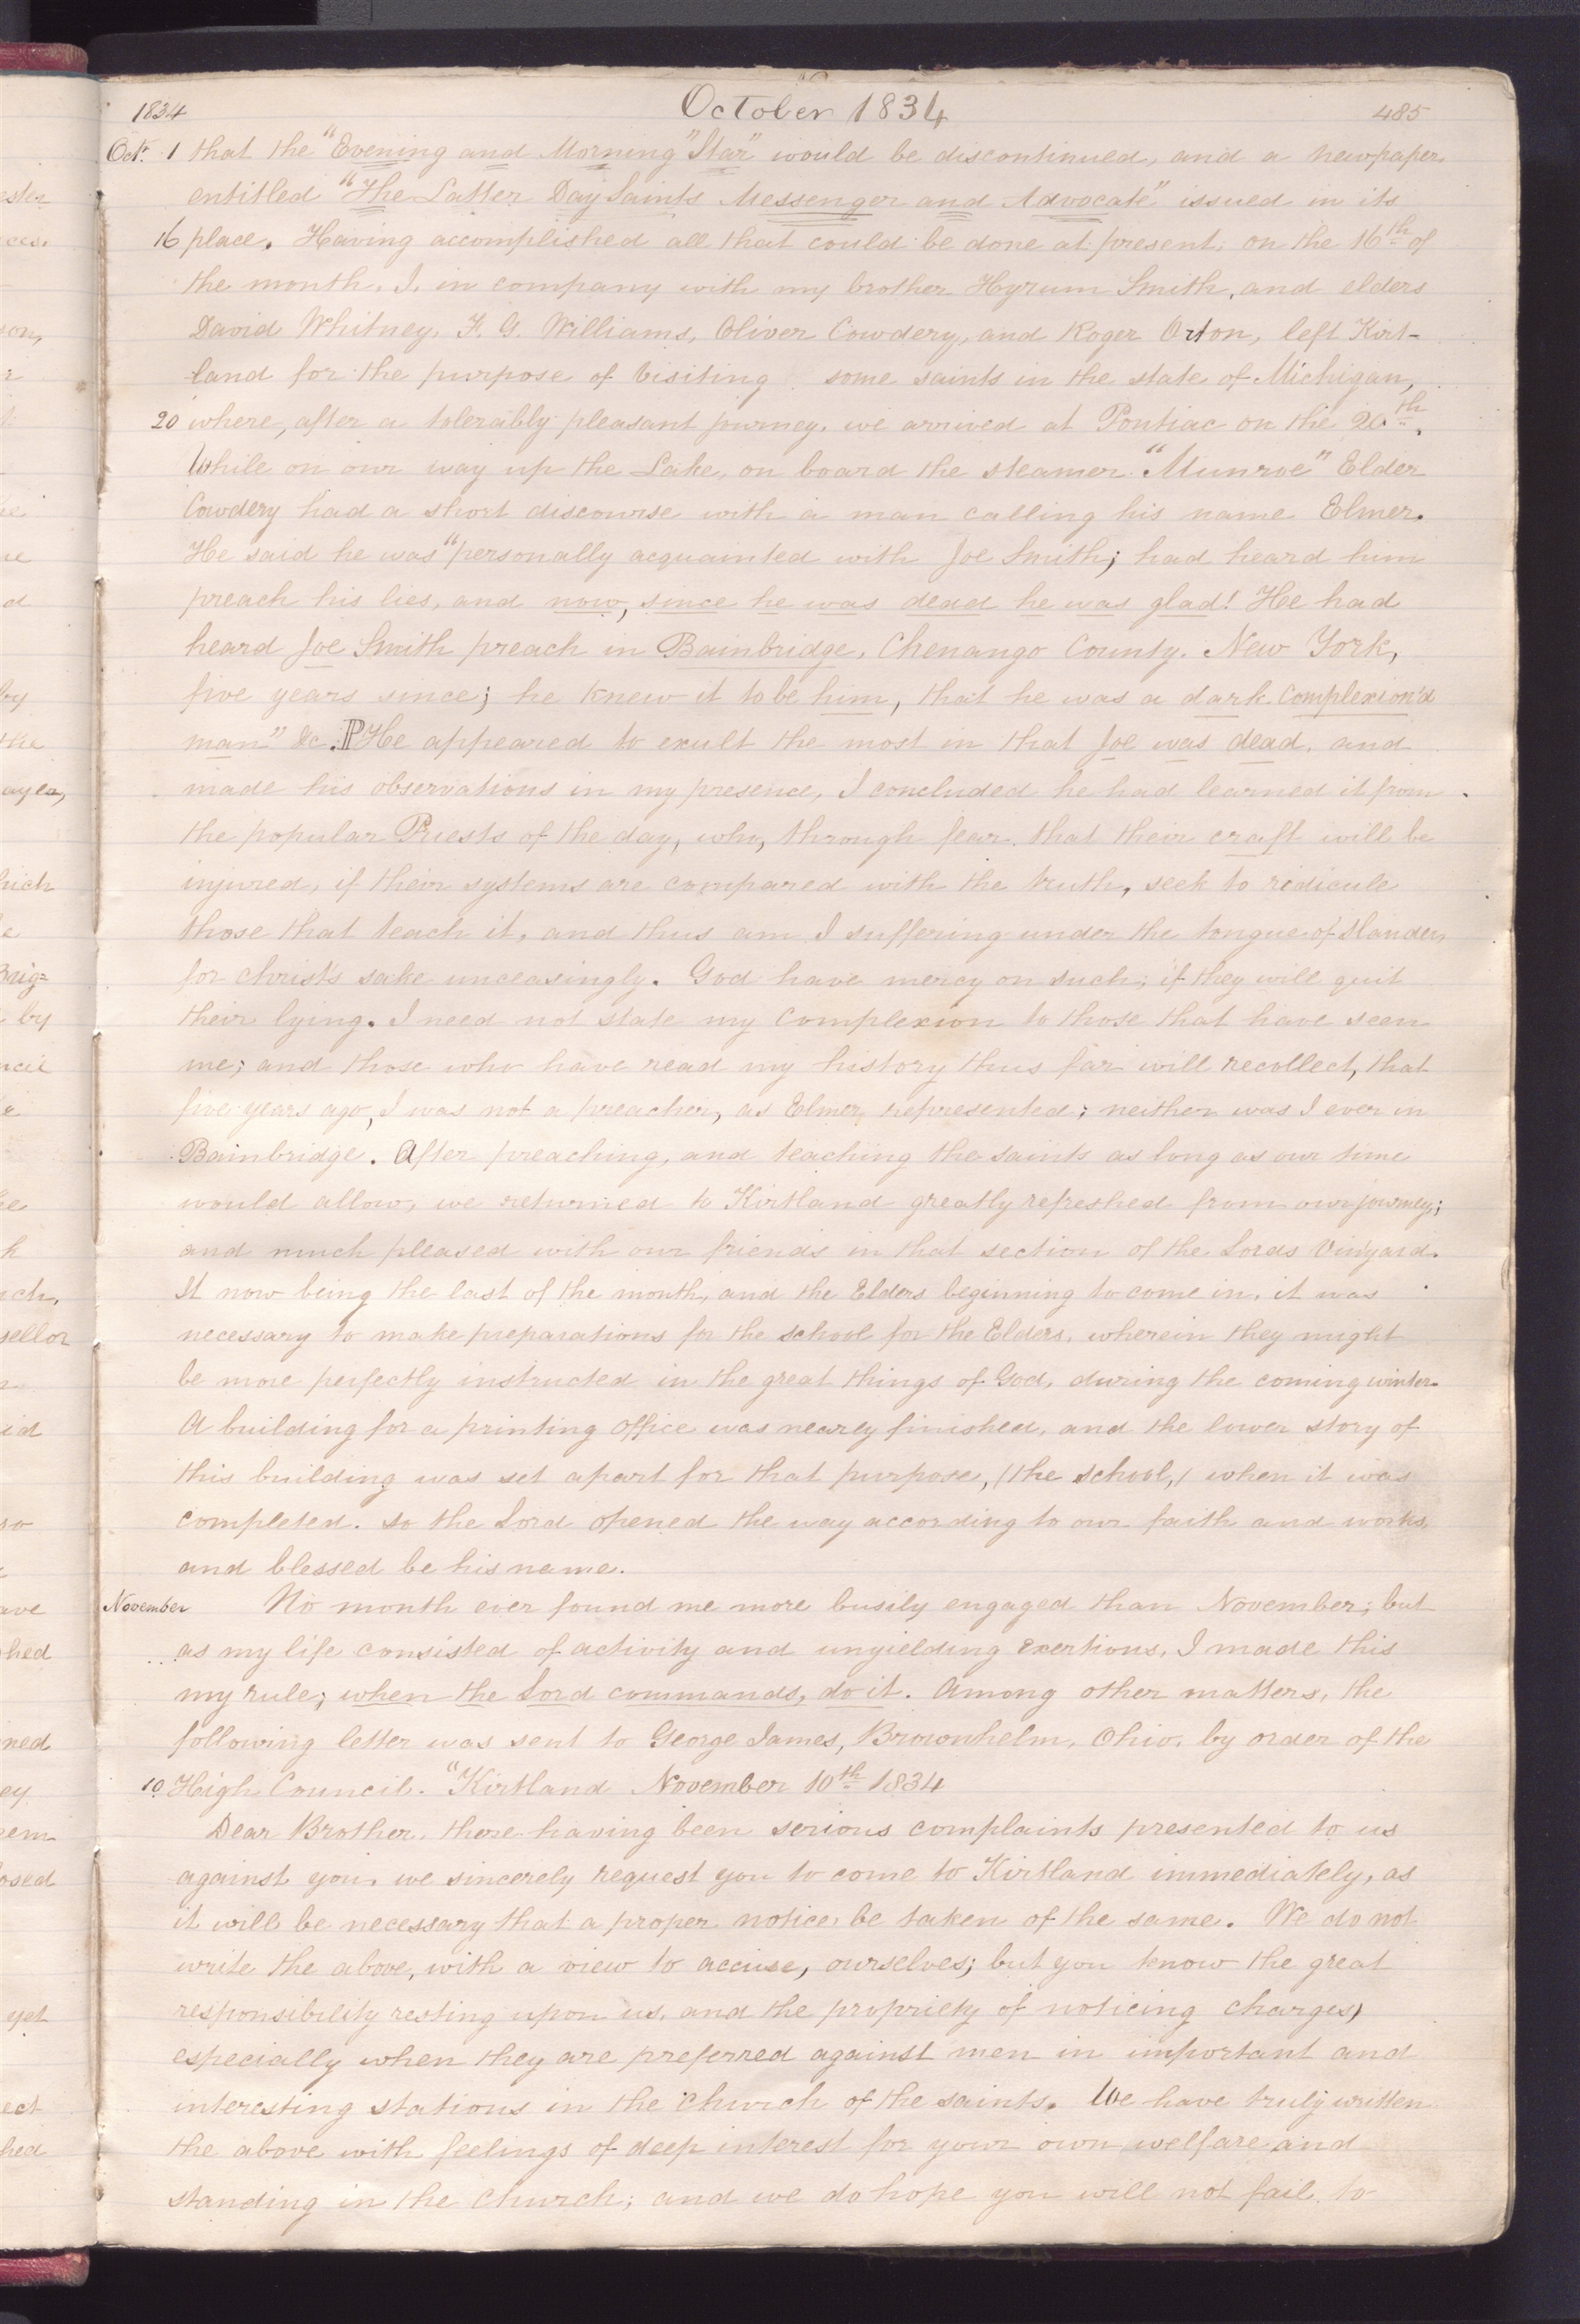 1834 October 1834 485
Octr. 1 that the "Evening and Morning "Star" would be discontinued, and a newpaper,
entitled "The Latter Day Saints Messenger and Advocate" issued in its
16 place. Having accomplished all that could be done at present, on the 16th of
the month, I, in company with my brother Hyrum Smith, and elders
David Whitney, F. G. Williams, Oliver Cowdery, and Roger Orton, left Kirt-
land for the purpose of visiting some saints in the state of Michigan,
20 where, after a tolerably pleasant journey, we arrived at Pontiac on the 20th.
While on our way up the Lake, on board the steamer "Munroe" Elder
Cowdery had a short discourse with a man calling his name Elmer.
He said he was "personally acquainted with Joe Smith; had heard him
preach his lies, and now, since he was dead he was glad! He had
heard Joe Smith preach in Bainbridge, Chenango County, New York,
five years since; he knew it to be him, that he was a dark complexion'd
man" &c. P He appeared to exult the most in that Joe was dead, and
made his observations in my presence, I concluded he had learned it from
the popular Priests of the day, who, through fear that their craft will be
injured, if their systems are compared with the truth, seek to redicule
those that teach it, and thus am I suffering under the tongue of slander,
for christ's sake unceasingly. God have mercy on such, if they will quit
their lying. I need not state my complexion to those that have seen
me; and those who have read my history thus far will recollect, that
five years ago, I was not a preacher, as Elmer represented; neither was I ever in
Bainbridge. After preaching, and teaching the saints as long as our time
would allow, we returned to Kirtland greatly refreshed from our journey;
and much pleased with our friends in that section of the Lords Vinyard.
It now being the last of the month, and the Elders beginning to come in, it was
necessary to make preparations for the school for the Elders, wherein they might
be more perfectly instructed in the great things of God, during the coming winter.
A building for a printing office was nearly finished, and the lower story of
this building was set apart for that purpose, (the school,) when it was
completed. so the Lord opened the way according to our faith and works,
and blessed be his name.
November No month ever found me more busily engaged than November; but
as my life consisted of activity and unyielding exertions, I made this
my rule; when the Lord commands, do it. Among other matters, the
following letter was sent to George James, Brownhelm, Ohio, by order of the
10 High Council. "Kirtland November 10th 1834
Dear Brother, there having been serious complaints presented to us
against you, we sincerely request you to come to Kirtland immediately, as
it will be necessary that a proper notice be taken of the same. We do not
write the above, with a view to accuse, ourselves; but you know the great
responsibility resting upon us, and the propriety of noticing charges,
especially when they are preferred against men in important and
interesting stations in the church of the saints. We have truly written
the above with feelings of deep interest for your own welfare and
standing in the church; and we do hope you will not fail to